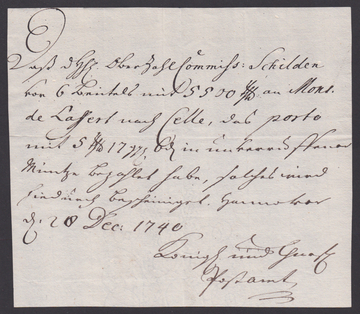 Daß dHh: Ober Zahl Commiss: Schilden
vor 6 Beutels mit 5500 an Mons:
de Laffert nach Celle, das porto
mit 5 17 in
Müntze bezahlet habe, solches wird
hiedurch bescheiniget. Hannover
d. 20 Dec: 1740
Königl und Churf
Postamt